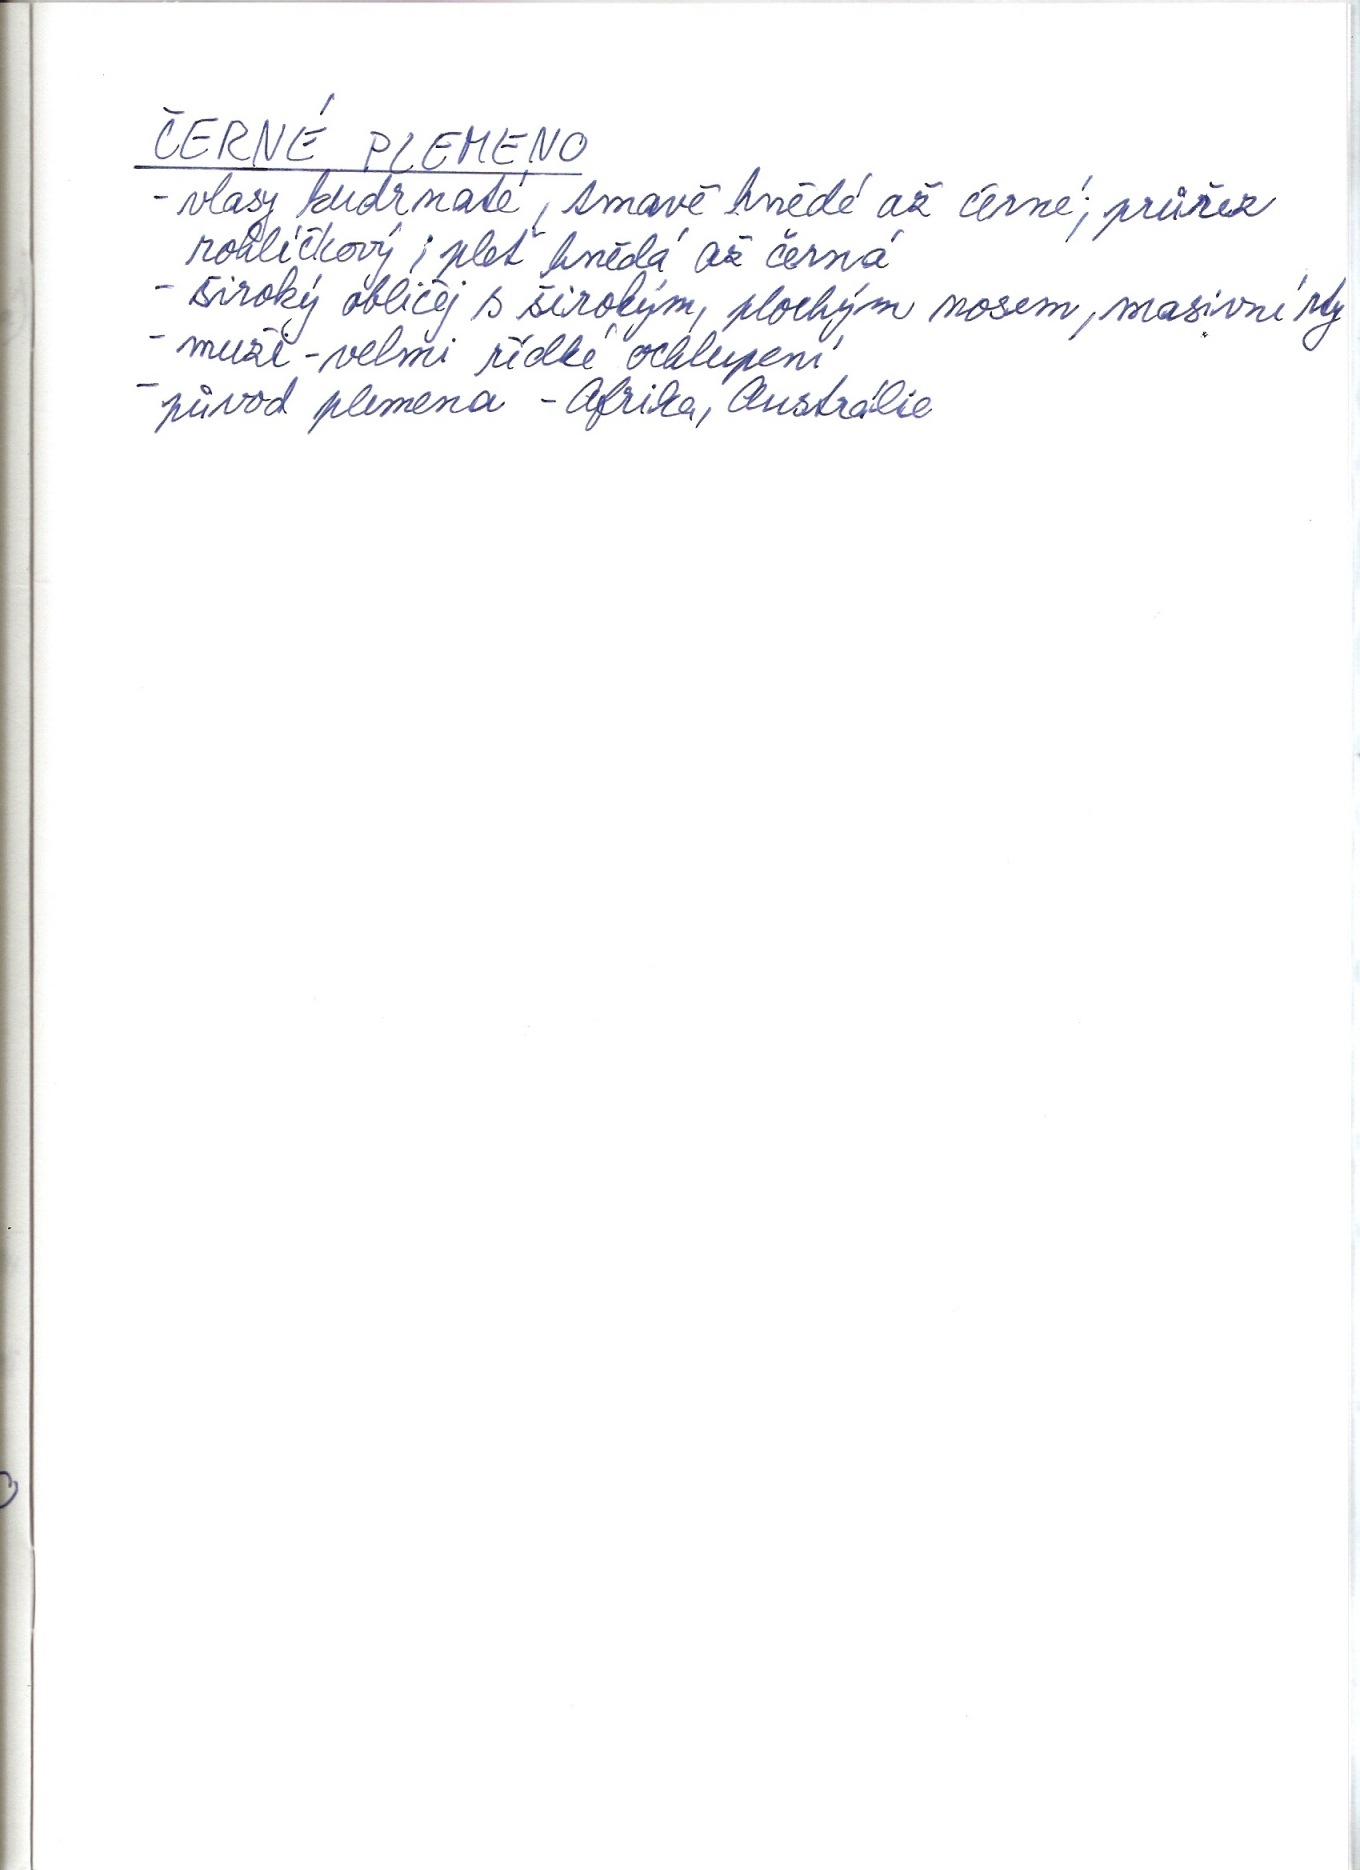 ČERNÉ PLEMENO
- vlasy kudrnaté, tmavě hnědé až černé; průřez
rohlíčkový; pleť hnědá až černá
- široký obličej s širokým, plochým nosem, masivní rty
- muži - velmi řídké ochlupení
- původ plemena - Afrika, Austrálie